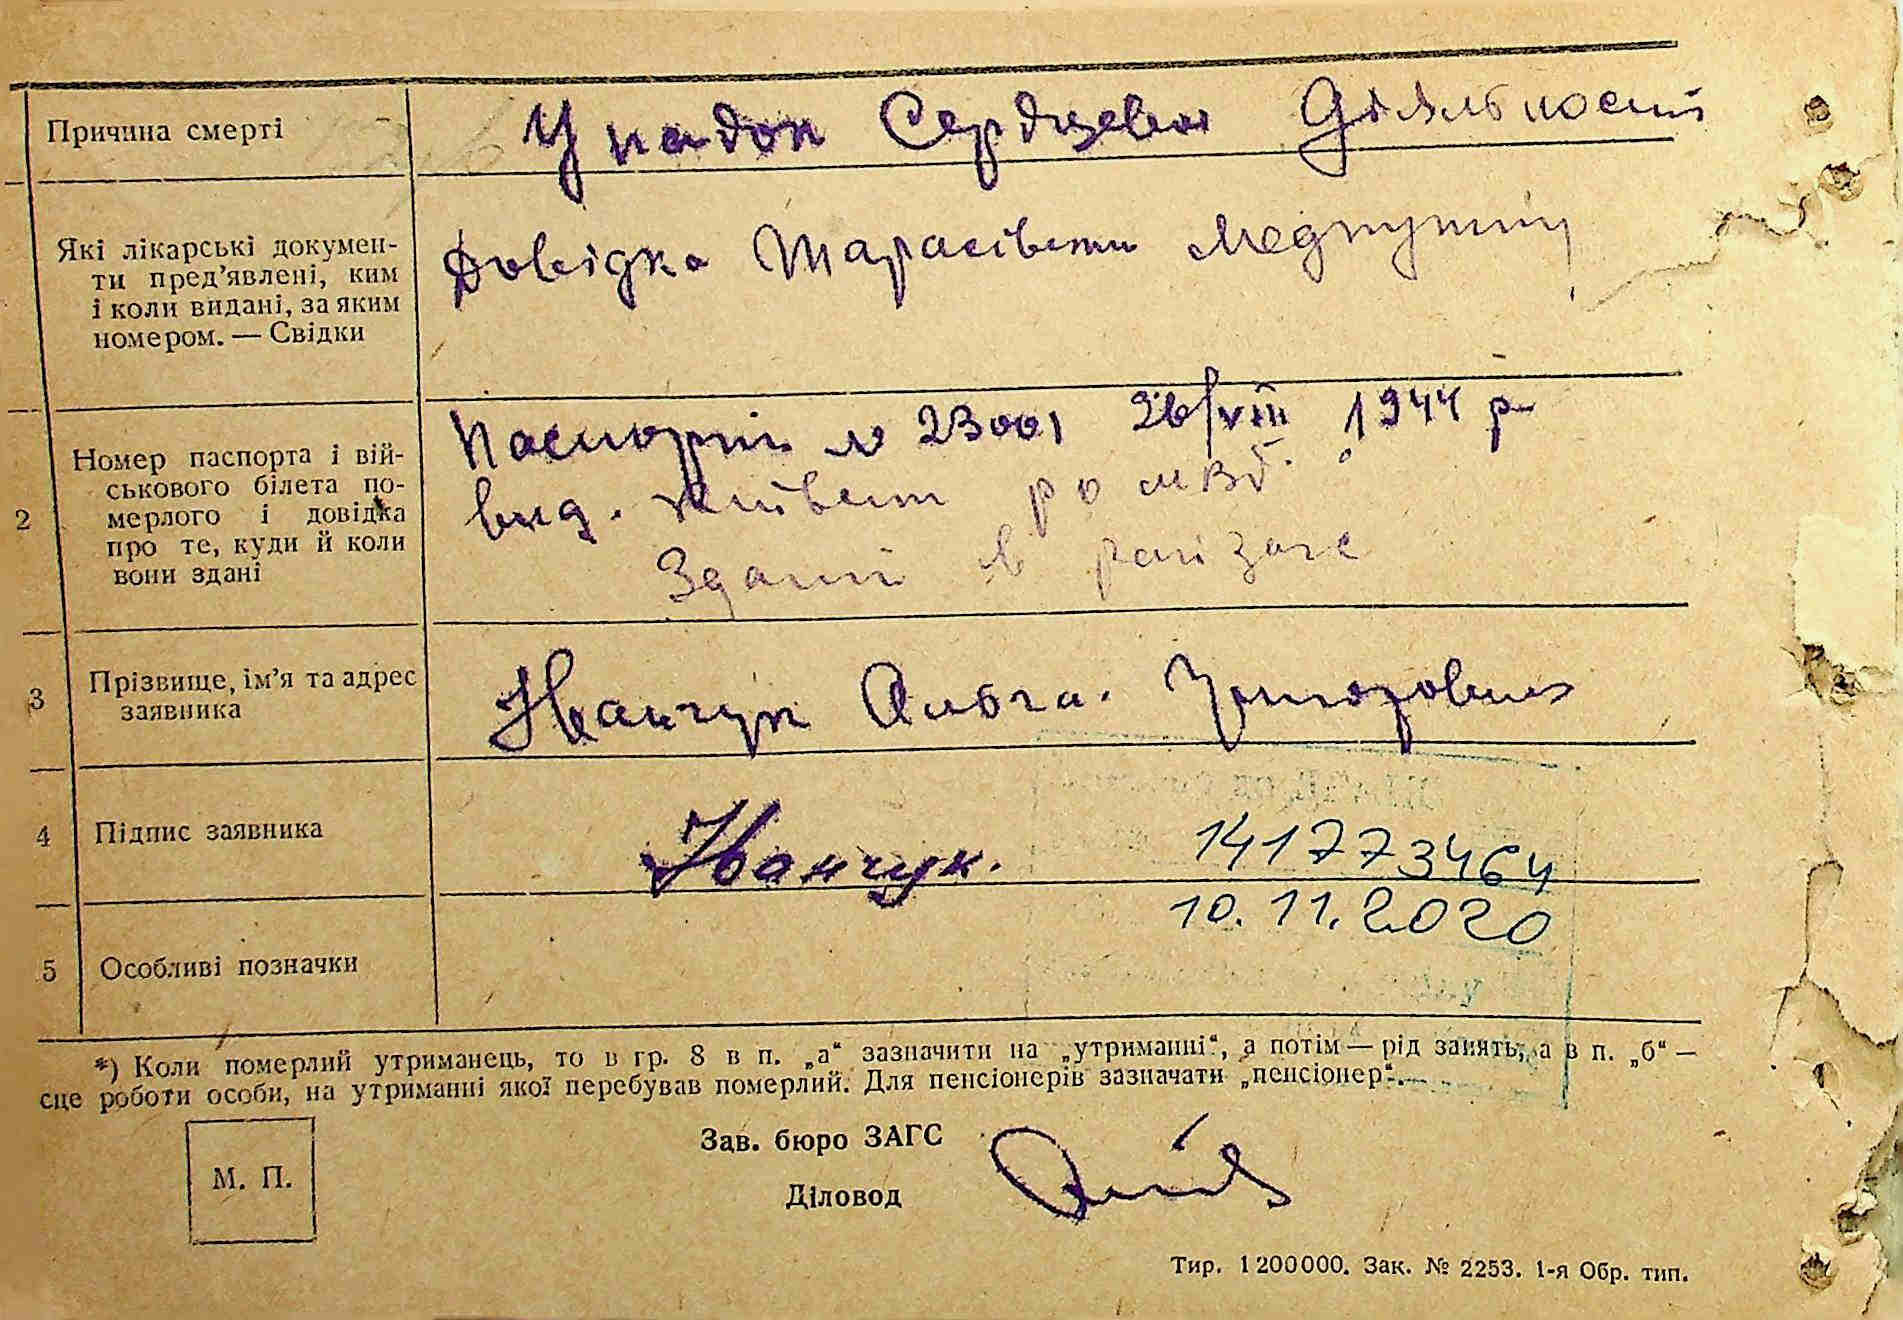 Причина смерті
Упадок Сердцевой Діяльності
Які лікарські докумен-
ти пред’явлені, ким
і коли видані, за яким
номером. — Свідки
Довідка Тарасівськи Медпункту
2
Номер паспорта і вій-
ськового білета по-
мерлого і довідка
про те, куди й коли
вони здані
Паспорт № 23001 26/VIII 1944 р
вид. РО МВД.
Здани в райзагс
3
Прізвище, ім’я та адрес
заявника
Іванчук Ольга.
4
Підпис заявника
Іванчук.
141773464
10.11.2020
5
Особливі позначки
*) Коли померлий утриманець, то в гр. 8 в п. „а“ зазначити на „утриманні“, а потім — рід занять, а в п. „б“ —
сце роботи особи, на утриманні якої перебував померлий. Для пенсіонерів зазначати „пенсіонер“.
М. П.
Зав. бюро ЗАГС
Діловод
Тир. 1200000. Зак. № 2253. 1-я Обр. тип.